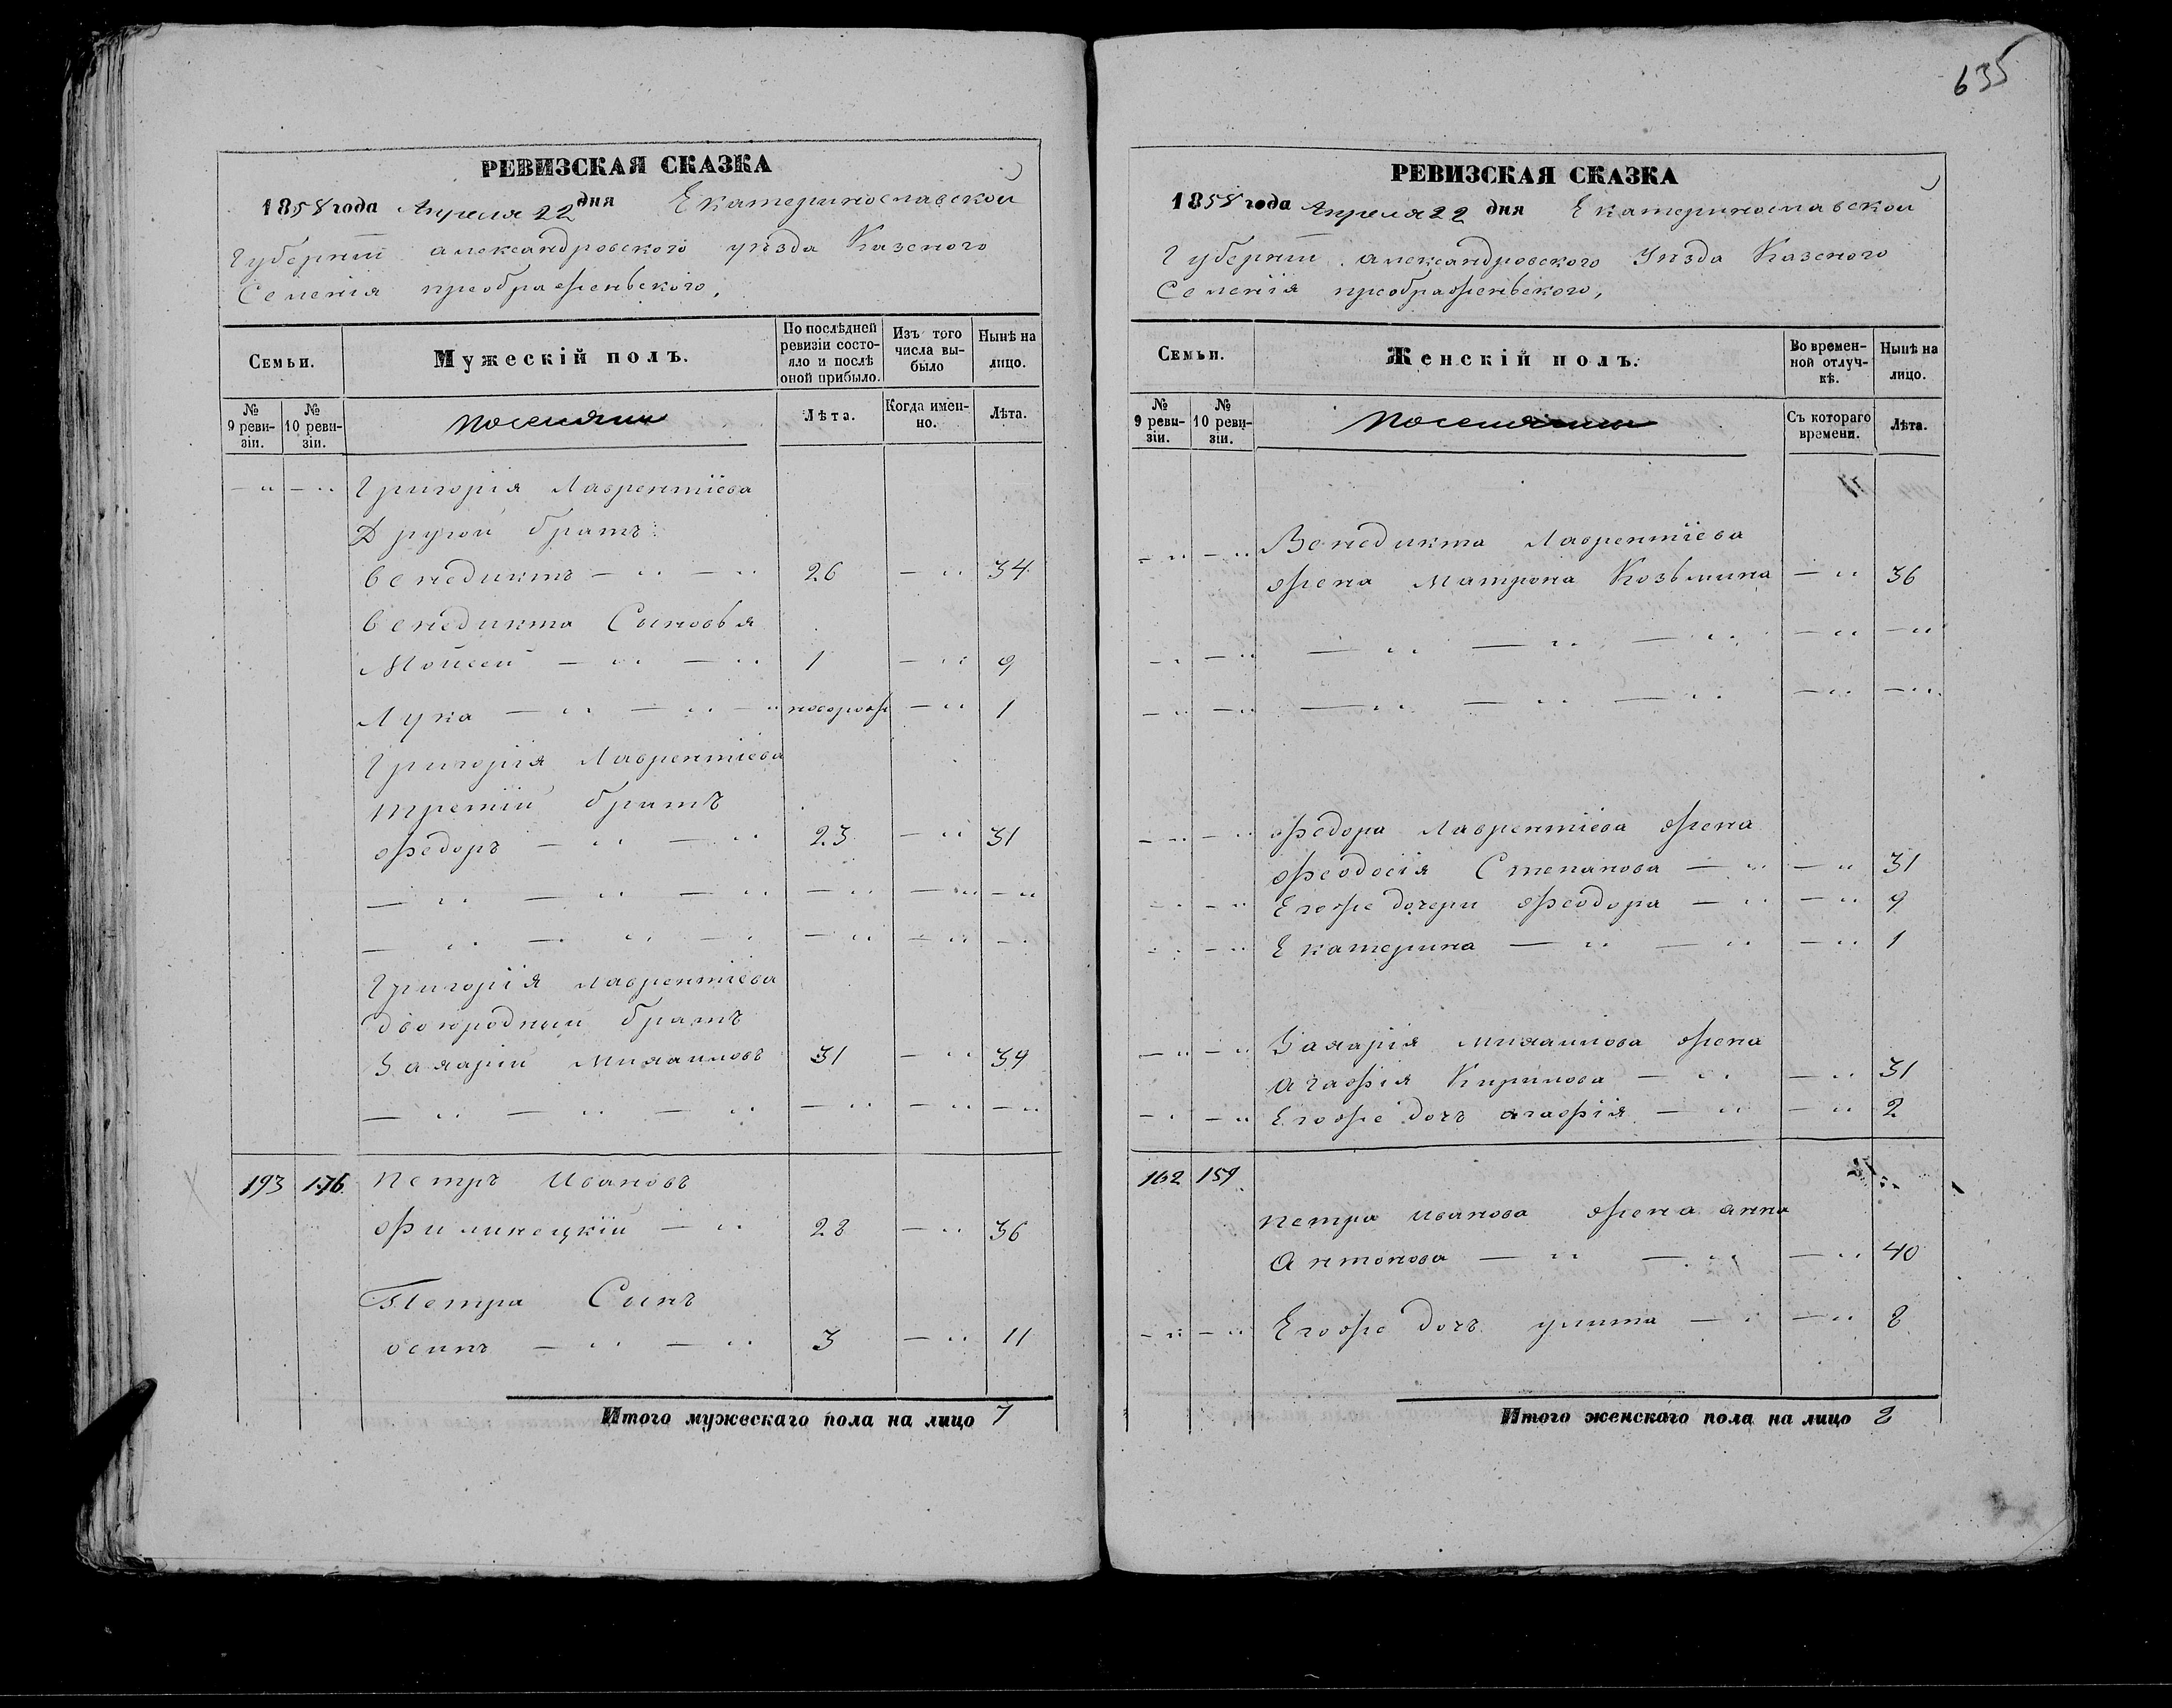 635
РЕВИЗСКАЯ СКАЗКА
1858 года Апреля 22 дня Екатеринославской
Губерніи александровского уѣзда Казеного
Селенія преображеньского,
Семьи.
Мужескій полъ.
По послѣдней ревизіи состояло и послѣ оной прибыло.
Изъ того числа выбыло
Нынѣ на лицо.
№ 9 ревизіи.
№ 10 ревизіи.
поселяни
Лѣта.
Когда именно.
Лѣта.
Григорія Лаврентіева
Другой братъ:
венедиктъ 26 34
венедикта Сыновья
Мойсей 1 9
Лука новорож 1
Григорія Лаврентіева
третій братъ
Федоръ 23 31
Григорія Лаврентіева
двоюродный братъ
Захарій Михаиловъ 31 39
193 176 Петръ Ивановъ
Филинецкій 28 36
Петра Сынъ
осипъ 3 11
Итого мужескаго пола на лицо 7
РЕВИЗСКАЯ СКАЗКА
1858 года Апреля 22 дня Екатеринославской
Губерніи александровского Уѣзда Казеного
Селенія преображеньского,
Семьи.
Женскій полъ.
Во временной отлучкѣ.
Нынѣ на лицо.
№ 9 ревизіи.
№ 10 ревизіи.
Поселянини
Съ котораго времени.
Лѣта.
Венедикта Лаврентіева
жена Матрона Козьмина 36
Федора Лаврентіева жена
Феодосія Степанова 31
Егоже дочери Феодора 9
Екатерина 1
Захарія михаилова жена
агафія Кирилова 31
Егоже дочъ агафія 2
162 159
петра иванова жена анна
Антонова 40
Егоже дочъ улита 8
Итого женскаго пола на лицо 8